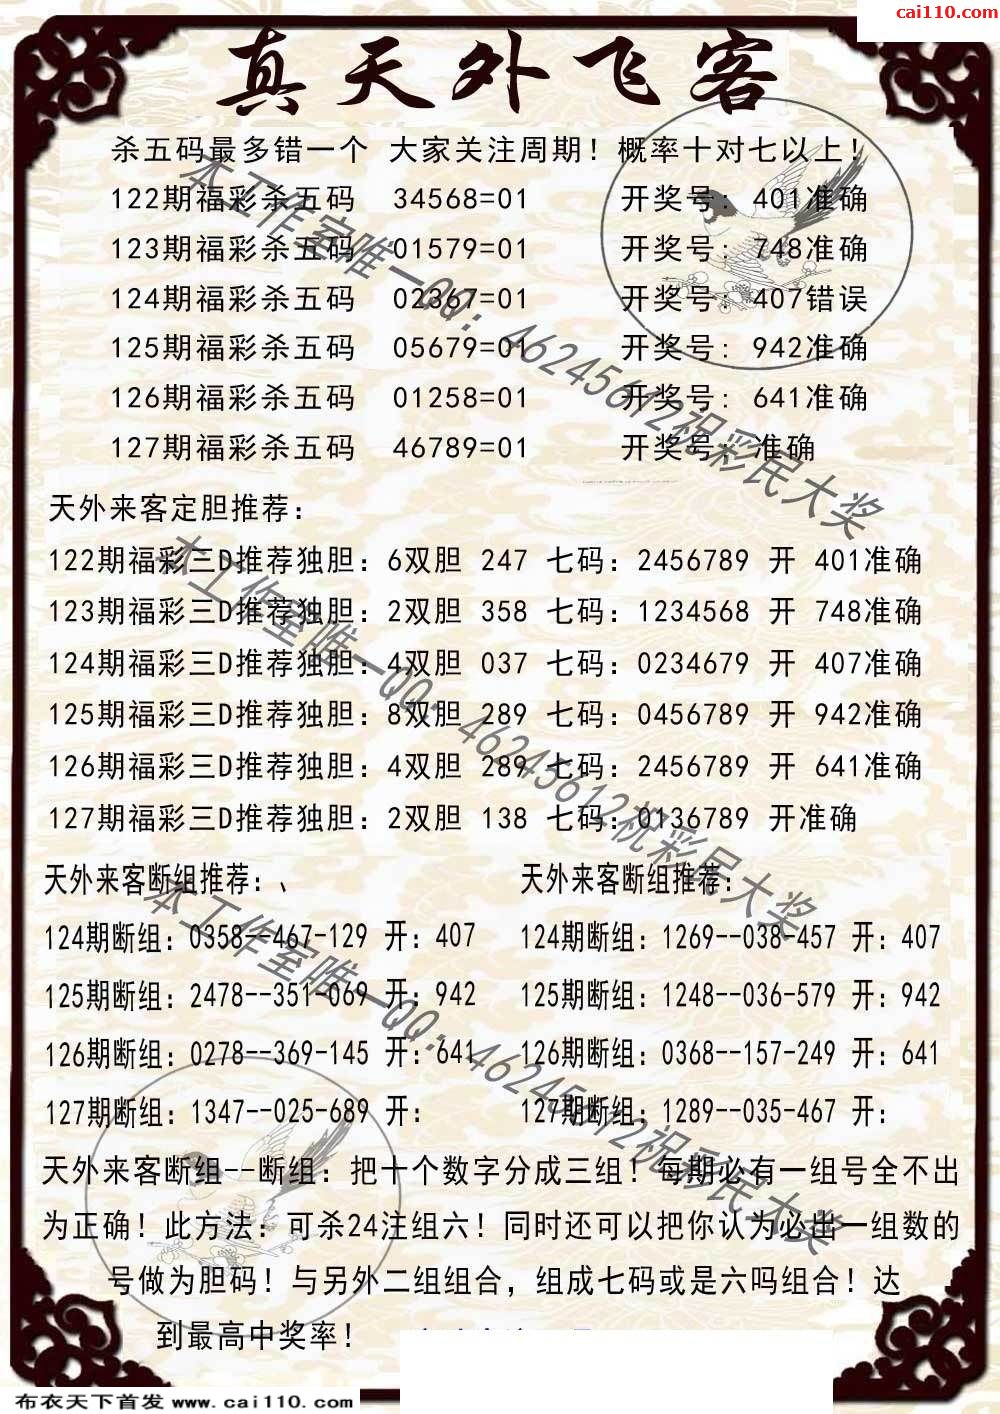 cai110.com
真天外飞客
杀五码最多错一个 大家关注周期！概率十对七以上！
122期福彩杀五码 34568=01 开奖号：401准确
123期福彩杀五码 01579=01 开奖号：748准确
124期福彩杀五码 02367=01 开奖号：407错误
125期福彩杀五码 05679=01 开奖号：942准确
126期福彩杀五码 01258=01 开奖号：641准确
127期福彩杀五码 46789=01 开奖号：准确
天外来客定胆推荐：
122期福彩三D推荐独胆：6双胆 247 七码：2456789 开 401准确
123期福彩三D推荐独胆：2双胆 358 七码：1234568 开 748准确
124期福彩三D推荐独胆：4双胆 037 七码：0234679 开 407准确
125期福彩三D推荐独胆：8双胆 289 七码：0456789 开 942准确
126期福彩三D推荐独胆：4双胆 289 七码：2456789 开 641准确
127期福彩三D推荐独胆：2双胆 138 七码：0136789 开准确
天外来客断组推荐：、 天外来客断组推荐：
124期断组：0358--467-129 开：407 124期断组：1269--038-457 开：407
125期断组：2478--351-069 开：942 125期断组：1248--036-579 开：942
126期断组：0278--369-145 开：641 126期断组：0368--157-249 开：641
127期断组：1347--025-689 开： 127期断组：1289--035-467 开：
天外来客断组--断组：把十个数字分成三组！每期必有一组号全不出
为正确！此方法：可杀24注组六！同时还可以把你认为必出一组数的
号做为胆码！与另外二组组合，组成七码或是六吗组合！达
到最高中奖率！
本工作室唯一QQ：46245612祝彩民大奖
本工作室唯一QQ：46245612祝彩民大奖
本工作室唯一QQ：46245612祝彩民大奖
布衣天下首发 www.cai110.com